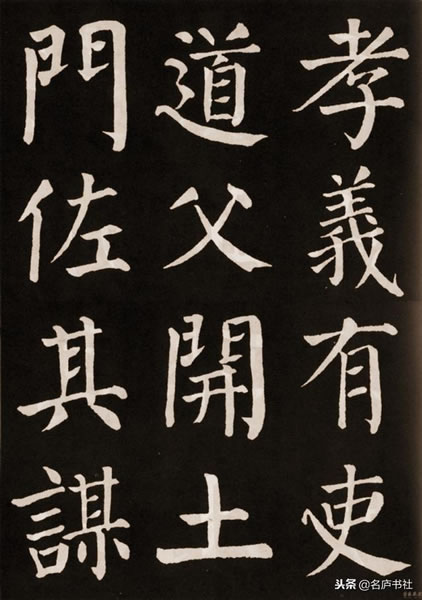 孝義有吏
道父開土
門佐其謀
头条 @名庐书社